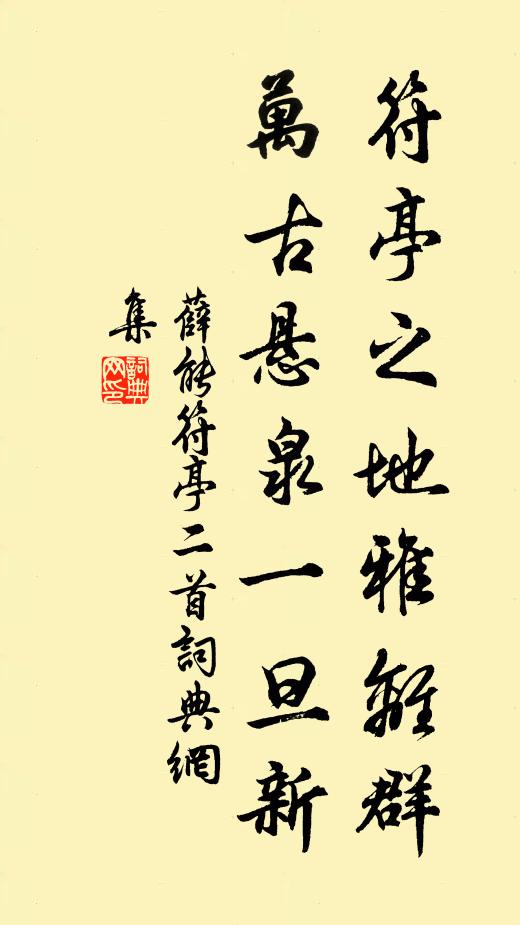 符亭之地雅離群
萬古悬泉一旦新
薛能符亭二首詞典網
集
詞典网印